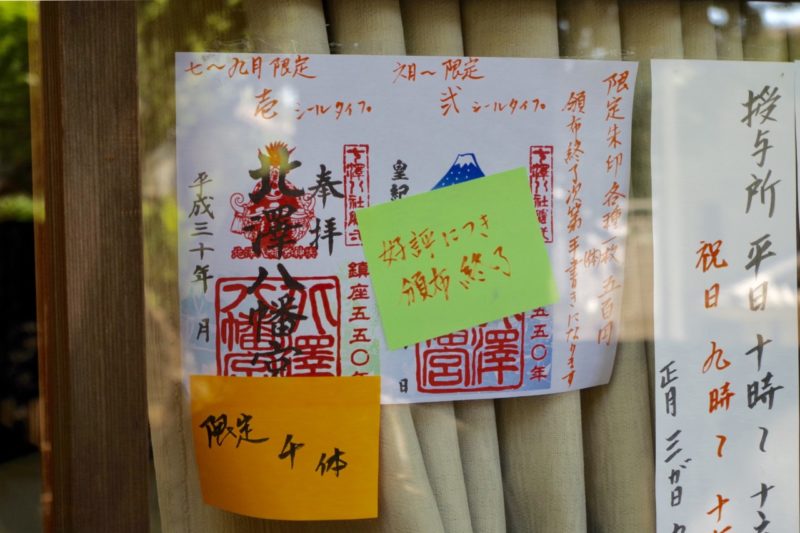 七〜九月限定
壱 シールタイプ
六月〜限定
弐 シールタイプ
限定朱印各種一枚 五百円
頒布終了次第手書きになります
奉拝
北澤八幡宮
平成三十年 月
鎮座五五〇年
皇紀
日
五五〇年
好評につき
頒布終了
限定 千体
授与所 平日 十時〜十六
祝日 九時〜十
正月三が日 九